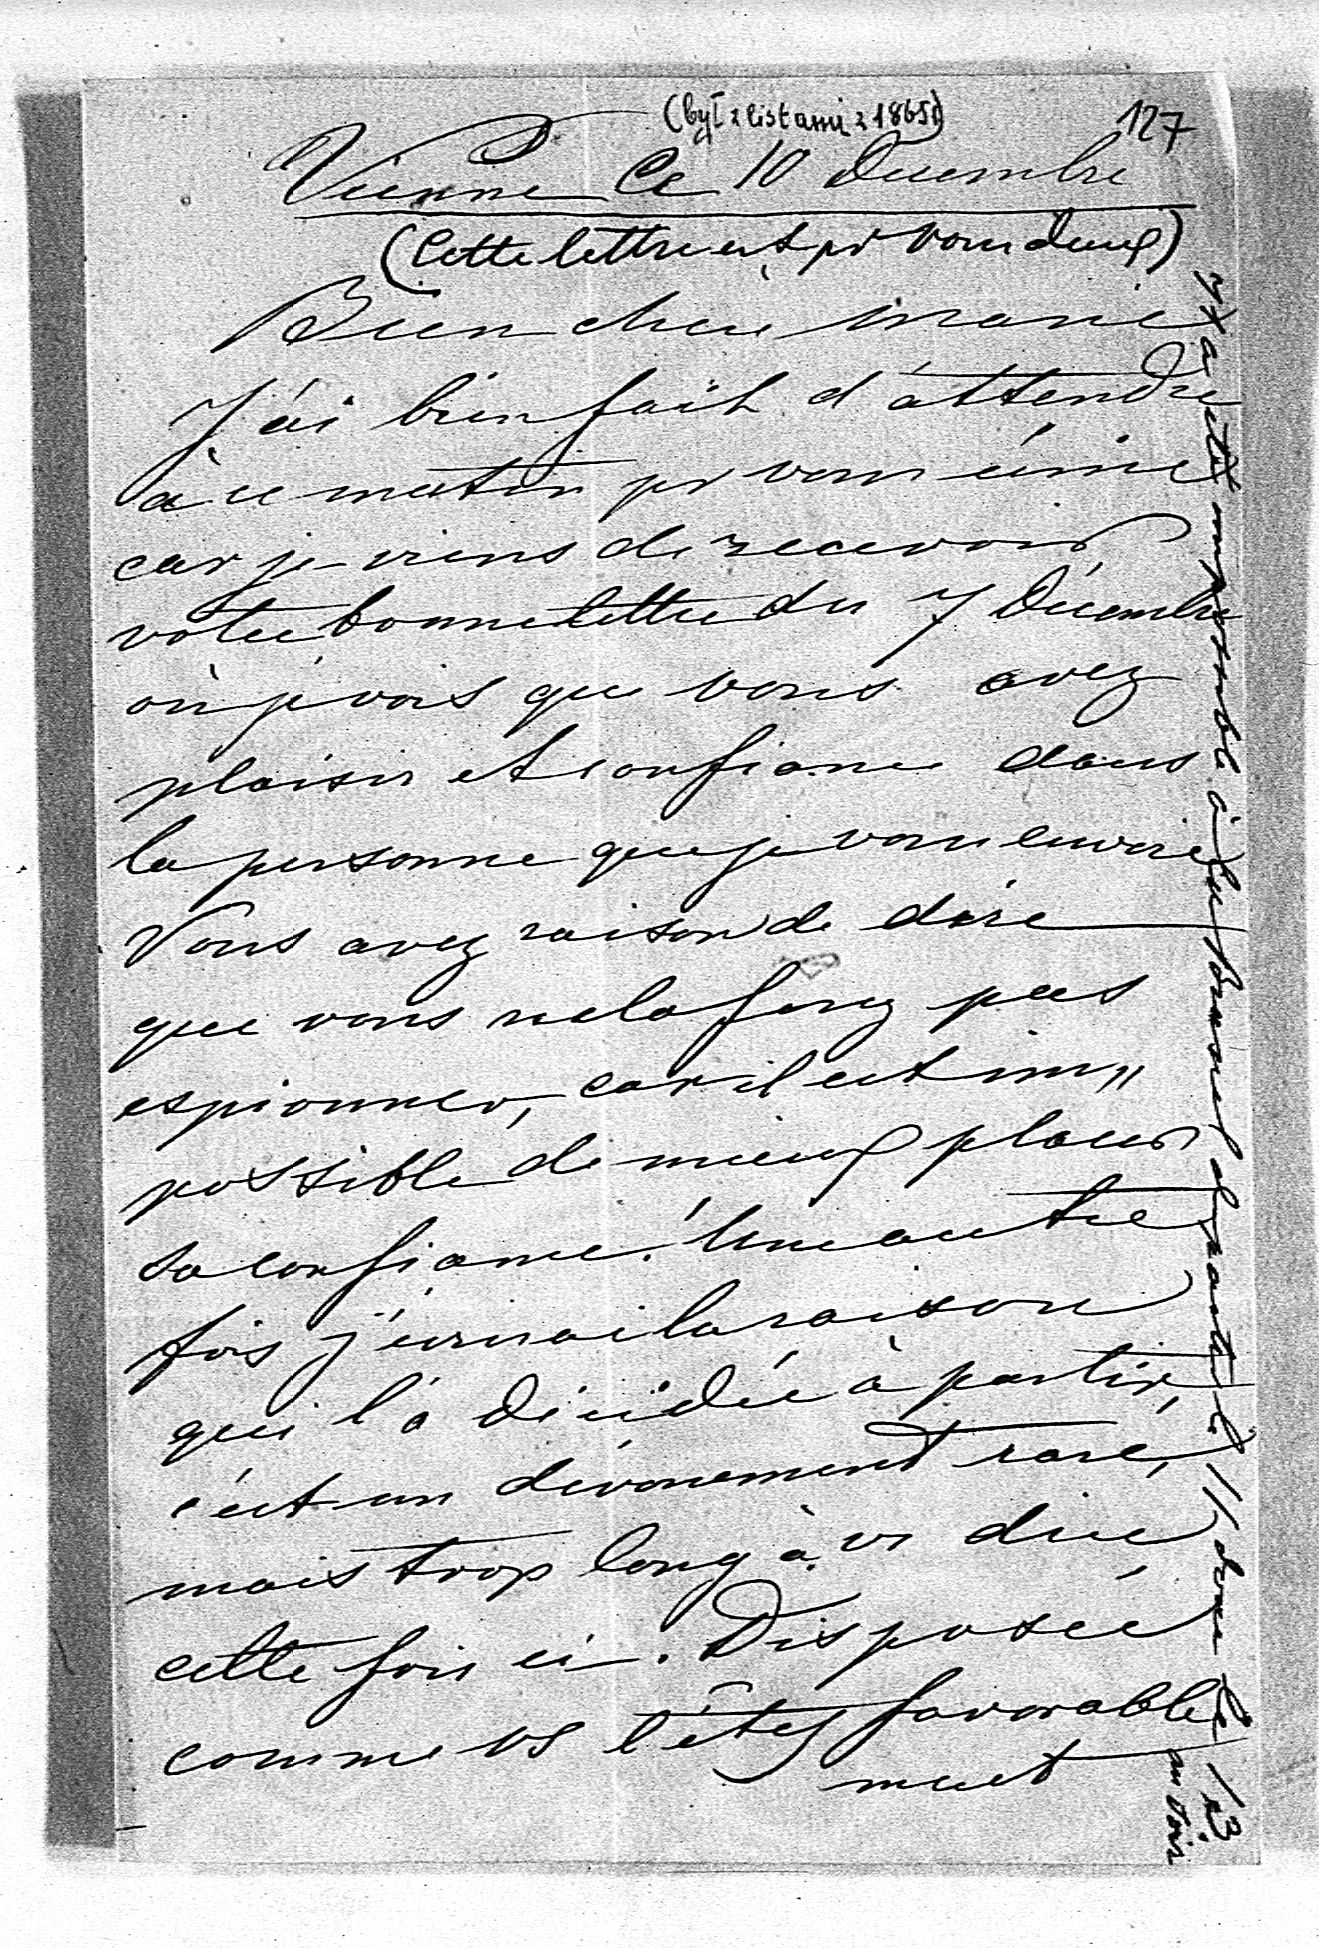 (był z listami z 1865r)
127
Vienne Ce 10 Decembre
(Cette lettre est pr vous deux)
Bien cheri Marie
J'ai bien fait d'attendre
à ce matin pr vous écrire
car je viens de recevoir
votre bonne lettre du 7 Décembre
où je vois que vous avez
plaisir et confiance dans
la personne que je vous envoie
Vous avez raison de dire
que vous ne la ferez pas
espionner, car il est im„
possible de mieux placer
sa confiance. Une autre
fois j'écrirai la raison
qui l'a décidée à partir,
c'est un dévouement rare,
mais trop long à vs dire
cette fois ci. Disposée
comme vs l'êtes favorable
ment
a été impossible à
le 11, le 13
au soir